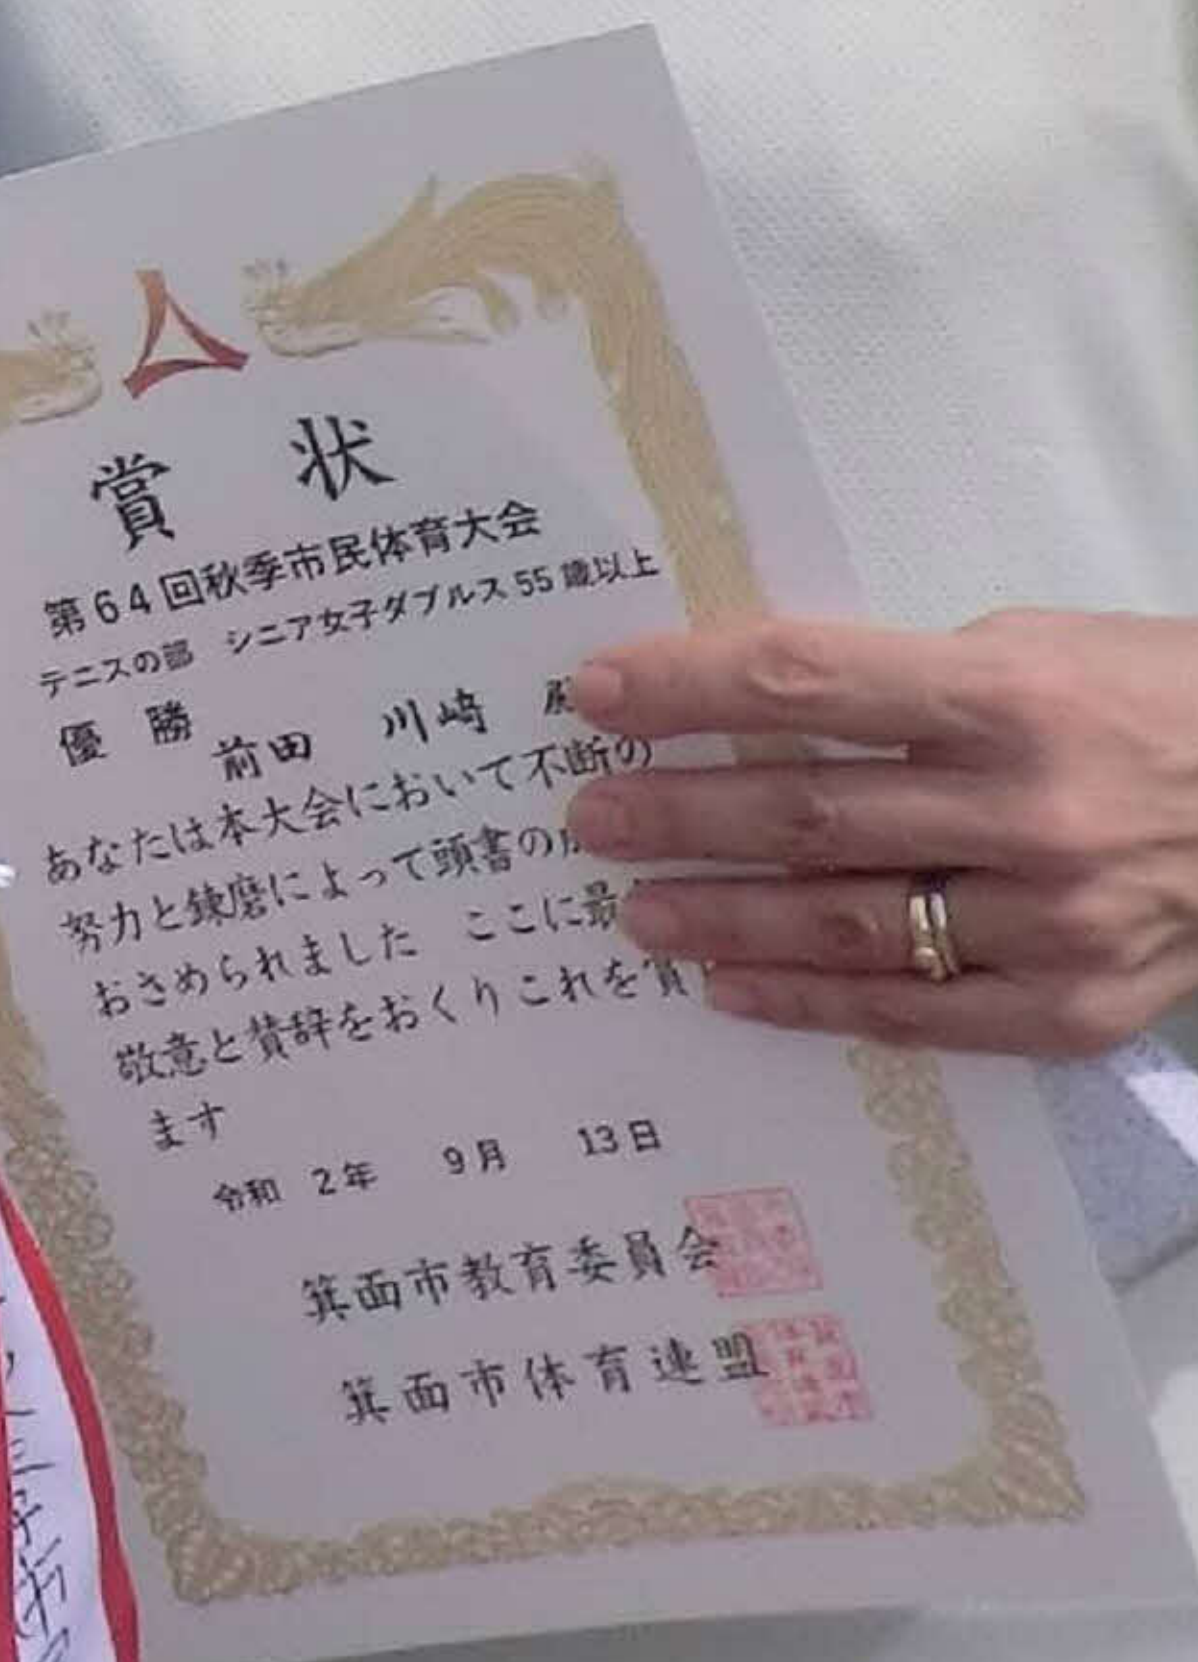 賞 状
第64回秋季市民体育大会
テニスの部 シニア女子ダブルス 55歳以上
優 勝
前田 川崎
あなたは本大会において不断の
努力と錬磨によって頭書の
おさめられました ここに最
敬意と賛辞をおくりこれを賞
ます
令和 2年 9月 13日
箕面市教育委員会
箕面市体育連盟